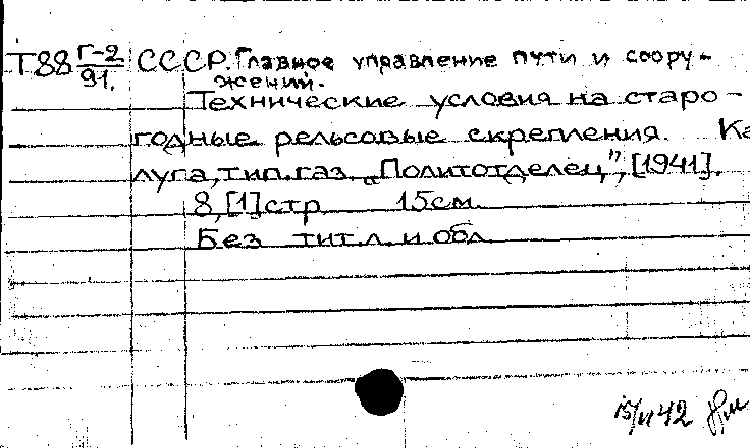 Т88 Г-2/91. СССР. Главное управление пути и соору-
жений.
Технические условия на старо-
годные рельсовые скрепления. Ка
луга, тип. газ. „Политотделец", [1941].
8, [1] стр. 15 см.
Без тит. л. и обл.
15/II 42